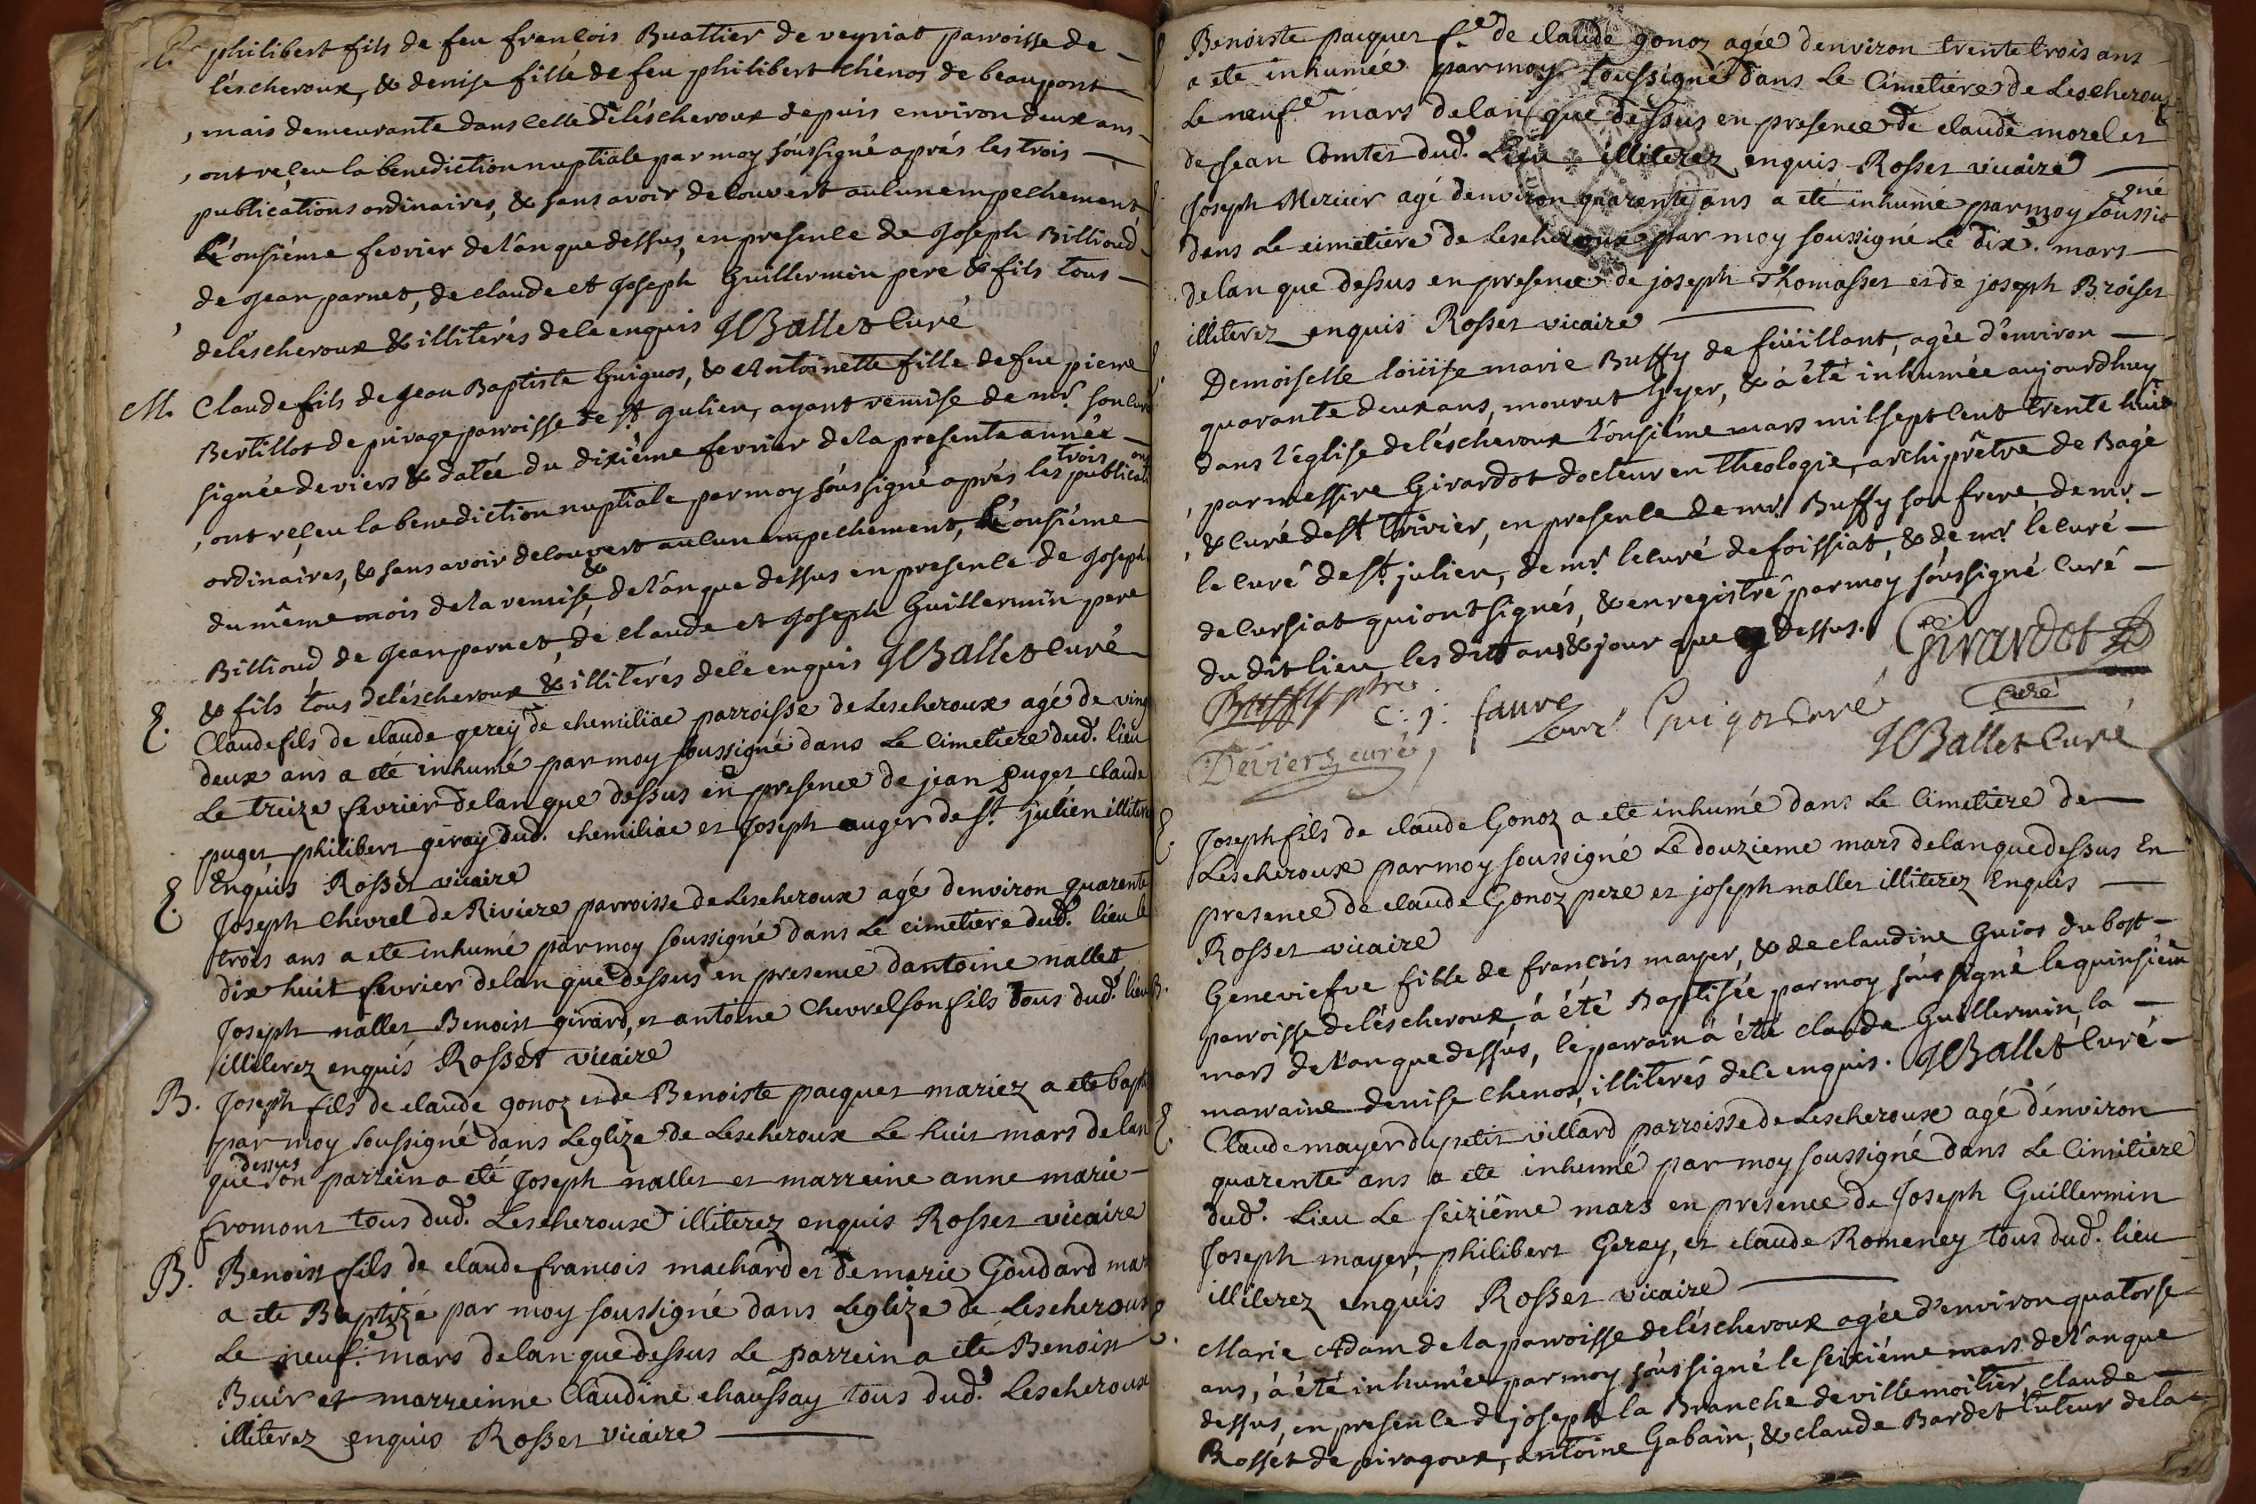 M. philibert fils de feu francois Buattier de veyriat parroisse de
léscheroux, & denise fille de feu philibert chénos de beaupont
, mais demeurante dans celle de léscheroux depuis environ deux ans
, ont reçeu la benediction nuptiale par moy soussigné aprés les trois
publications ordinaires, & sans avoir decouvert aucun empechement,
le onsiéme fevrier de l'an que dessus, en presence de Joseph Billioud
de Jean parnet, de claude et Joseph Guillermin pere & fils tous
de léscheroux & illiterés de ce enquis JC Ballet Curé
M. Claude fils de Jean Baptiste Guiguos, & Antoinette fille de feu pierre
Bertillot de privage parroisse de st Julien, ayant remise de mr. son curé
signée deviers & datée du dixiéme fevrier de la presente année
, ont reçeu la benediction nuptiale par moy soussigné aprés les trois publications
ordinaires, & sans avoir decouvert aucun empechement, le onsiéme
du même mois de la remise, & de l'an que dessus en presence de Joseph
Billioud de Jean parnet, de claude et Joseph Guillermin pere
& fils tous de léscheroux & illiterés de ce enquis JC Ballet curé
E. Claude fils de claude gerey de chemiliac parroisse de Lescheroux agé de vingt
deux ans a eté inhumé par moy soussigné dans Le Cimetiere dud. lieu
Le treize fevrier de lan que dessus en presence de jean puget claude
puget, philibert geray dud. chemiliac et Joseph auger de st. julien illiterez
Enquis Rosset vicaire
E. Joseph Chevrel de Riviere parroisse de Lescheroux agé denviron quarente
trois ans a ete inhumé par moy soussigné dans Le cimetiere dud. lieu le
dix huit fevrier de lan que dessus en presence dantoine nallet
Joseph nallet Benoist girard, et antoine Chevrel son fils tous dud. lieu
illiterez enquis Rosset vicaire
B. Joseph fils de claude gonoz et de Benoiste pacquet mariez a ete bapt
par moy soussigné dans Leglize de Lescheroux Le huit mars de lan
que dessus son parrein a eté Joseph nallet et marreine anne marie
fromont tous dud. Lescheroux illiterez enquis Rosset vicaire
B. Benoist fils de claude francois machard et de marie Goudard mar
a ete Baptizé par moy soussigné dans Leglize de Lescheroux
Le neuf.e mars de lan que dessus Le parrein a eté Benoist
Buir et marreinne Claudine chaussay tous dud. Lescheroux
illiterez enquis Rosset vicaire
Benoiste pacquet f.e de claude gonoz agée denviron trente trois ans
a ete inhumée par moy soussigné dans Le Cimetiere de Lescheroux
Le neuf.e mars de lan que dessus en presence de claude morel et
de Jean Comtet dud. Lieu illiterez enquis Rosset vicaire
Joseph Mercier agé denviron quarente ans a eté inhumé par moy soussigné
dans Le cimetiere de Lescheroux par moy soussigné Le dix.e mars
de lan que dessus en presence de joseph Thomasset et de joseph Broiset
illiterez enquis Rosset vicaire
Demoiselle loüise marie Buffy de feüillant, agée d'environ
quarante deux ans, mourut hyer, & á été inhumée aujourdhuy
dans l'église de léscheroux l'onsiéme mars mil sept cent trente huit
, par messire Girardot docteur en theologie, archiprêtre de Bagé
, & curé de st trivier, en presence de mr. Buffy son frere, de mr.
le curé de st. julien, de mr. le curé de foissiat, & de mr. le curé
de cursiat qui ont signés, & enregistré par moy soussigné curé
du dit lieu les dits an & jour que dessus. Girardot
Buffy ptre C: j: faure Curé Guigot Curé Curé
Deviers curé, JC Ballet Curé
E. Joseph fils de claude Gonoz a ete inhumé dans Le Cimetiere de
Lescheroux par moy soussigné Le douzieme mars de lan que dessus En
presence de claude Gonoz pere et joseph nallet illiterez Enquis
Rosset vicaire
B. Geneviefve fille de francois mayer, & de claudine Guios du bost
parroisse de léscheroux, á été Baptisée par moy soussigné le quinsiéme
mars de l'an que dessus, le parrain á été claude Guillermin, la
marraine denise chenos, illiterés de ce enquis. JC Ballet Curé
E. Claude mayer du petit villard parroisse de Lescheroux agé d'environ
quarente ans a ete inhumé par moy soussigné dans Le Cimitiere
dud. Lieu Le seiziême mars en presence de Joseph Guillermin
Joseph mayer, philibert Gerey, et claude Romeney tous dud. lieu
illiterez enquis Rosset vicaire
E. Marie Adam de la parroisse de léscheroux agée d'environ quatorse
ans, á été inhumée par moy soussigné le seixiéme mars de l'an que
dessus, en presence de joseph la Branche de villemoitier, claude
Rosset de piragoux, antoine Gabain, & claude Bardet tuteur de la